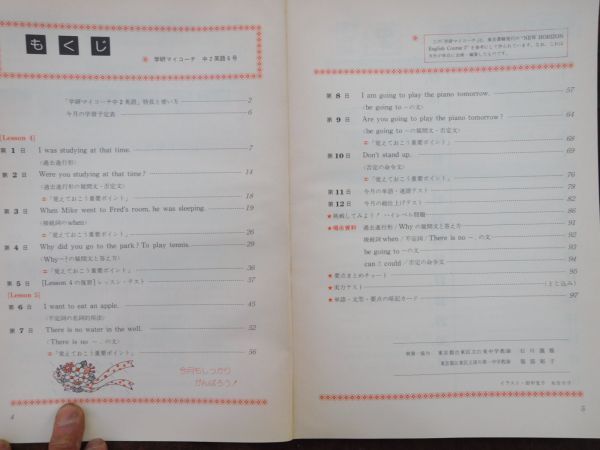 もくじ
★ 学研マイコーチ 中2英語5号
「学研マイコーチ中2英語」特長と使い方 2
今月の学習予定表 6
[Lesson 4]
第1日 I was studying at that time. 7
(過去進行形)
第2日 Were you studying at that time? 14
(過去進行形の疑問文・否定文)
=「覚えておこう重要ポイント」 18
第3日 When Mike went to Fred's room, he was sleeping. 19
(接続詞のwhen)
=「覚えておこう重要ポイント」 28
第4日 Why did you go to the park? To play tennis. 29
(Why~?の疑問文と答え方)
=「覚えておこう重要ポイント」 36
第5日 [Lesson 4の復習] レッスン・テスト 37
[Lesson 5]
第6日 I want to eat an apple. 45
(不定詞の名詞的用法)
第7日 There is no water in the well. 52
(There is no ~. の文)
=「覚えておこう重要ポイント」 56
今月もしっかり
がんばろう!
4
この「学研マイコーチ」は、東京書籍発行の"NEW HORIZON
English Course 2"を参考にして作られています。なお、これは
第8日 I am going to play the piano tomorrow. 57
(be going to ~の文)
第9日 Are you going to play the piano tomorrow? 64
(be going to ~の疑問文・否定文)
=「覚えておこう重要ポイント」 68
第10日 Don't stand up. 69
(否定の命令文)
=「覚えておこう重要ポイント」 76
第11日 今月の単語・連語テスト 78
第12日 今月の総仕上げテスト 82
★挑戦してみよう! ハイレベル問題 86
★提出資料 過去進行形/Why の疑問文と答え方 91
接続詞 when/不定詞/There is no ~. の文 92
be going to ~の文 93
can と could/否定の命令文 94
★要点まとめチャート 95
★実力テスト (とじ込み)
★単語・文型・要点の暗記カード 97
5